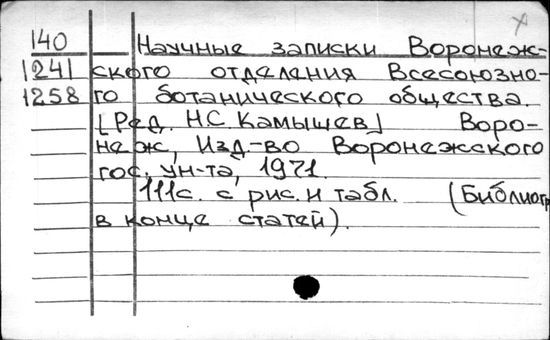 140 Научные записки Воронеж-
1241 ского отделения Всесоюзно-
1258 го ботанического общества.
[Ред. Н.С. Камышев] Воро-
неж, Изд-во Воронежского
гос. ун-та, 1971.
111с. с рис. и табл. (Библиогр
в конце статей).